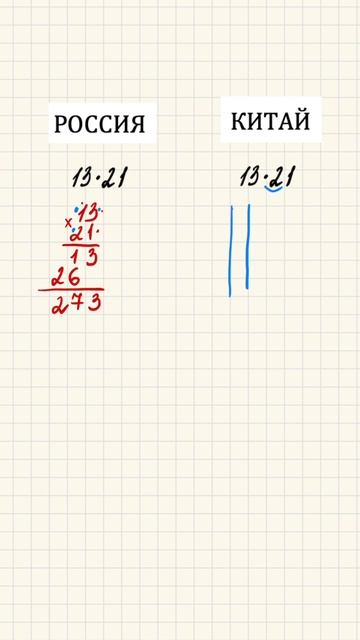 РОССИЯ
13·21
×13
21
13
26
273
КИТАЙ
13·21